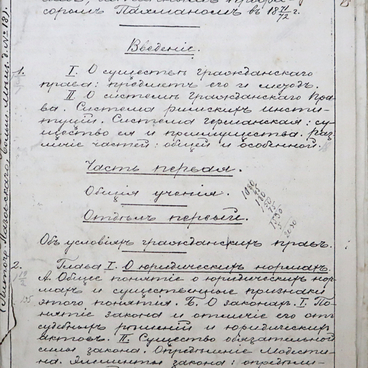 сором Пахманом в 18 71/72 г.
Введение.
1. I. О существе гражданскаго
права: предмет его и метод.
II. О системе гражданскаго пра-
ва. Система римских инсти-
туций. Система германская: су-
щество ея и преимущества. Раз-
личие частей: общей и особенной.
Часть первая.
Общия учения.
8
Отдел первый.
Об условиях гражданских прав.
2. Глава I. О юридических нормах.
А. Общее понятие о юридических нор-
мах и существенные признаки
этого понятия. Б. О законах. I. По-
нятие закона и отличие его от
судебных решений и юридических
актов. II. Существо обязательной
силы закона. Определение Модести-
на. Элементы закона: определи-